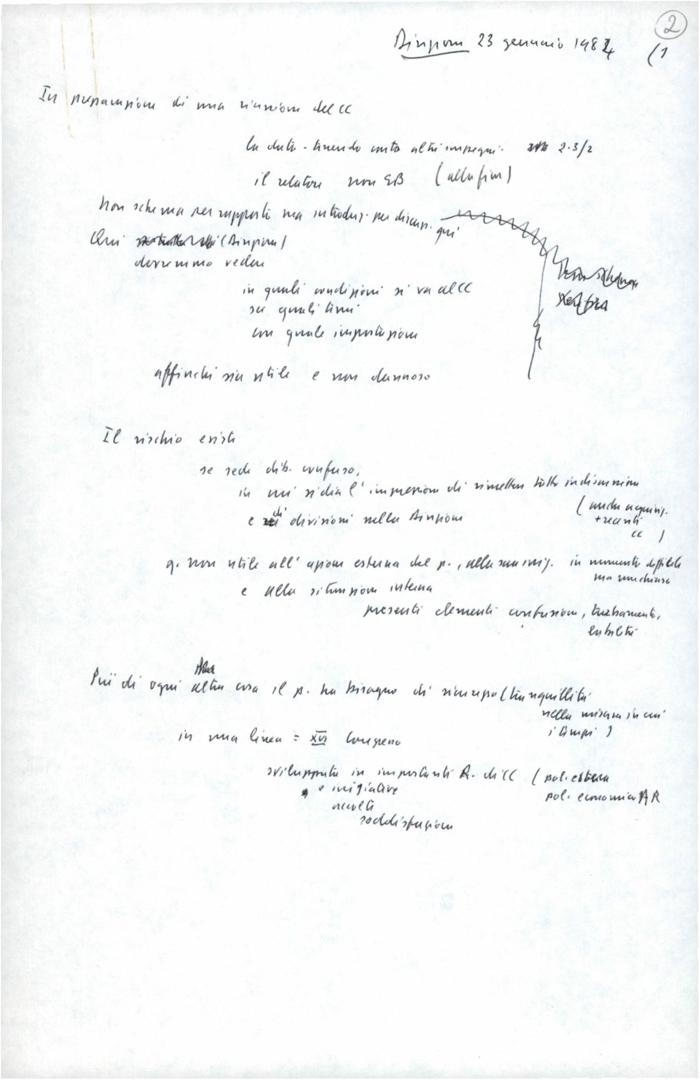 2
Direzione 23 gennaio 1984 (1
In preparazione di una riunione del CC
la data - tenendo conto altri impegni. 2-3/2
il relatore non EB (alla fine)
Non schema per rapporto ma introduz. per discus. qui
Qui (Direzione)
dovremmo vedere
in quali condizioni si va al CC
su quali temi
con quale impostazione
affinché sia utile e non dannoso
Il rischio esiste
se sede dib. confuso,
in cui si dia l'impressione di rimettere tutto in discussione
(anche acquisiz.
+ recenti
CC)
e di divisioni nella Direzione
q. non utile all'azione esterna del p., alla sua imm. in momento difficile
ma
e alla situazione interna
presenti elementi confusione, turbamento,
labilità
Più di ogni altra cosa il p. ha bisogno di sicurezza (tranquillità
nella misura in cui
i tempi)
in una linea = XVI Congresso
sviluppata in importanti R. di CC (pol. estera
pol. economica
e iniziative
accolte
soddisfazione